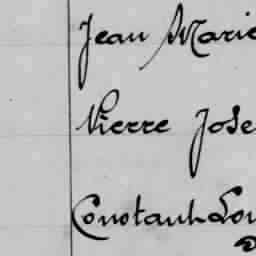 Jean Marie
Pierre Jose
Constant Lou